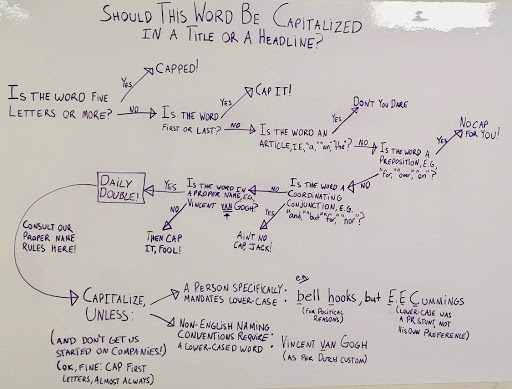 SHOULD THIS WORD BE CAPITALIZED
IN A TITLE OR A HEADLINE?
CAPPED!
YES
IS THE WORD FIVE
LETTERS OR MORE?
NO
CAP IT!
YES
IS THE WORD
FIRST OR LAST?
NO
DON'T YOU DARE
YES
IS THE WORD AN
ARTICLE, I.E, "a," "an," "the"?
NO
NO CAP
FOR YOU!
YES
IS THE WORD A
PREPOSITION, E.G.
"for," "over," "on"?
NO
IS THE WORD A
COORDINATING
CONJUNCTION, E.G.
"and," "but" "for," "nor"?
YES
AIN'T NO
CAP, JACK!
NO
IS THE WORD IN
A PROPER NAME, E.G.
VINCENT VAN GOGH?
NO
THEN CAP
IT, FOOL!
YES
DAILY
DOUBLE!
CONSULT OUR
PROPER NAME
RULES HERE!
CAPITALIZE,
UNLESS:
(AND DON'T GET US
STARTED ON COMPANIES!)
(OK, FINE: CAP FIRST
LETTERS, ALMOST ALWAYS)
A PERSON SPECIFICALLY
MANDATES LOWER-CASE:
bell hooks, but E.E CUMMINGS
(FOR POLITICAL
REASONS)
(LOWER-CASE WAS
A PR STUNT, NOT
HIS OWN PREFERENCE)
NON-ENGLISH NAMING
CONVENTIONS REQUIRE
A LOWER-CASED WORD:
VINCENT VAN GOGH
(AS PER DUTCH CUSTOM)